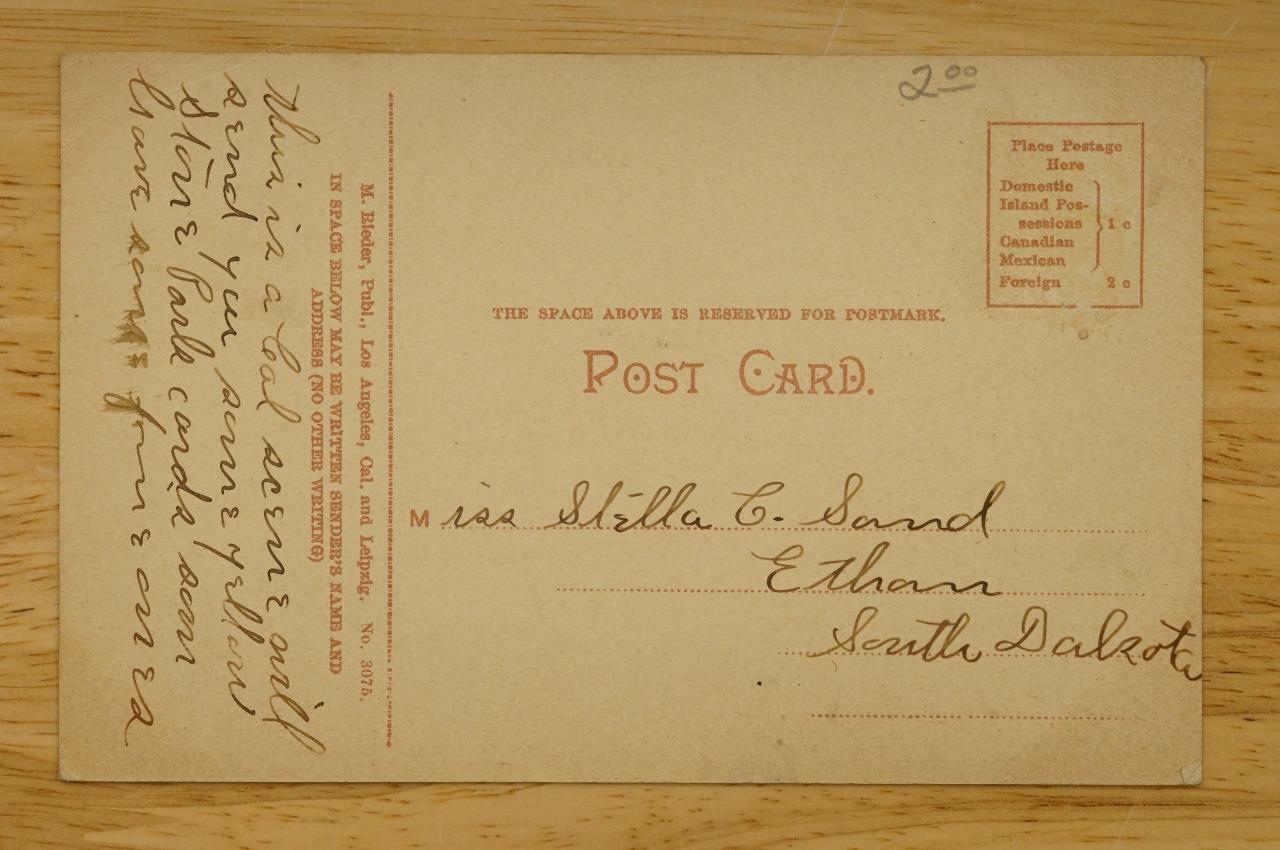 2 00
Place Postage
Here
Domestic
Island Pos-
sessions
Canadian
Mexican
1 c
Foreign 2 c
THE SPACE ABOVE IS RESERVED FOR POSTMARK.
POST CARD.
Miss Stella C. Sand
Ethan
South Dakota
M. Rieder, Publ., Los Angeles, Cal. and Leipzig. No. 3075.
IN SPACE BELOW MAY BE WRITTEN SENDER'S NAME AND
ADDRESS (NO OTHER WRITING)
This is a Cal scene will
send you some yellow
Stone Park cards som
have some fine ones